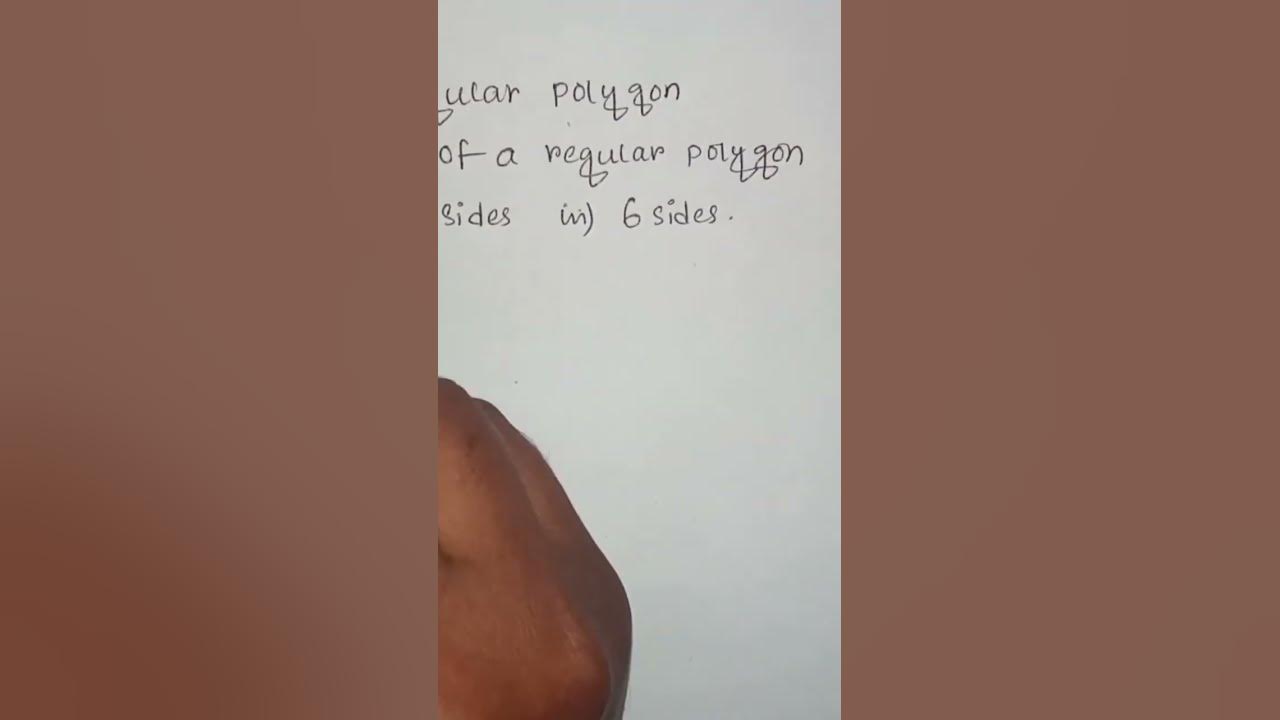 gular polygon
of a regular polygon
sides iii) 6 sides.